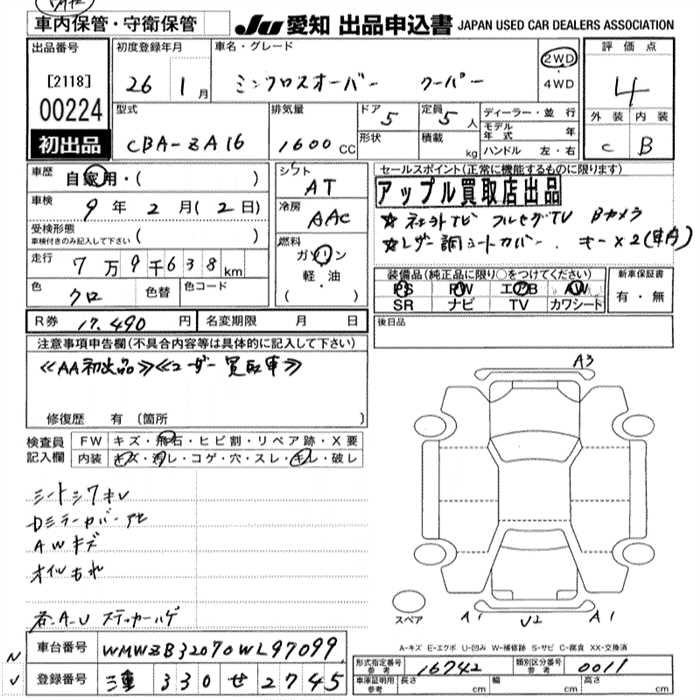 車内保管・守衛保管
JU 愛知 出品申込書 JAPAN USED CAR DEALERS ASSOCIATION
出品番号
[2118]
00224
初出品
初度登録年月
26 1月
車名・グレード
ミニクロスオーバー クーパー
2WD
・
4WD
評価点
4
外装 内装
C B
型式
CBA-ZA16
排気量
1600 CC
ドア 5
形状
定員 5 人
積載 kg
ディーラー・並行
モデル年式 年
ハンドル 左・右
車歴 自家用・( )
車検 9年 2月(2日)
受検形態
車検付きのみ記入して下さい ( )
走行 7万9千638km
色 クロ 色替 色コード
シフト
AT
冷房
AAC
燃料
ガソリン
軽・油
( )
R券 17,490円 名変期限 月 日
セールスポイント(正常に機能するものに限ります)
アップル買取店出品
☆社外TV フルセグTV Bカメラ
☆レザー調シートカバー キー×2(車A)
装備品(純正品に限り○をつけてください)
PS PW エアB AW
SR ナビ TV カワシート
新車保証書
有・無
後日品
注意事項申告欄(不具合内容等は具体的に記入して下さい)
≪AA初出品≫≪ユーザー買取車≫
修復歴 有 (箇所
検査員
記入欄
FW キズ・飛石・ヒビ割・リペア跡・X要
内装 キズ・汚レ・コゲ・穴・スレ・キレ・破レ
シートシワキレ
Dミラーカバーアセ
AWキズ
オイルもれ
各A.U ステッカーハゲ
A3
スペア
A1 U2 A1
A-キズ E-エクボ U-凹み W-補修跡 S-サビ C-腐食 XX-交換済
車台番号 WMWZB32070WL97099
登録番号 三重 330 せ 2745
形式指定番号
参考
16742
類別区分番号
参考
0011
車庫証明用
参考
長さ cm 幅 cm 高さ cm